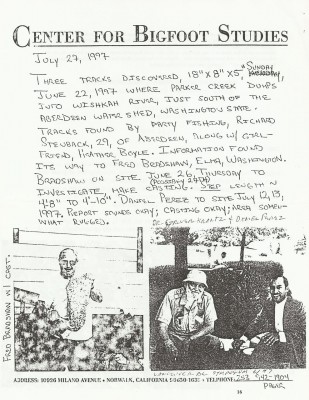 CENTER FOR BIGFOOT STUDIES
JULY 27, 1997
THREE TRACKS DISCOVERED, 18"X 8"X 5", "SUNDAY",
JUNE 22, 1997 WHERE PARKER CREEK DUMPS
INTO WISHKAH RIVER, JUST SOUTH OF THE
ABERDEEN WATERSHED, WASHINGTON STATE.
TRACKS FOUND BY PARTY FISHING, RICHARD
STEUBACK, 29, OF ABERDEEN, ALONG W/ GIRL-
FRIEND, HEATHER BOYLE. INFORMATION FOUND
ITS WAY TO FRED BRADSHAW, ELMA, WASHINGTON.
BRADSHAW ON SITE JUNE 26, THURSDAY TO
INVESTIGATE, MAKE CASTING. STEP LENGTH
4'8" TO 4'-10". DANIEL PEREZ TO SITE JULY 12, 13,
1997. REPORT SOUNDS OKAY; CASTING OKAY; AREA SOME-
WHAT RUGGED.
DR. GROVER KRANTZ & DANIEL PEREZ
FRED BRADSHAW W/ CAST.
ADDRESS: 10926 MILANO AVENUE • NORWALK, CALIFORNIA • TELEPHONE: